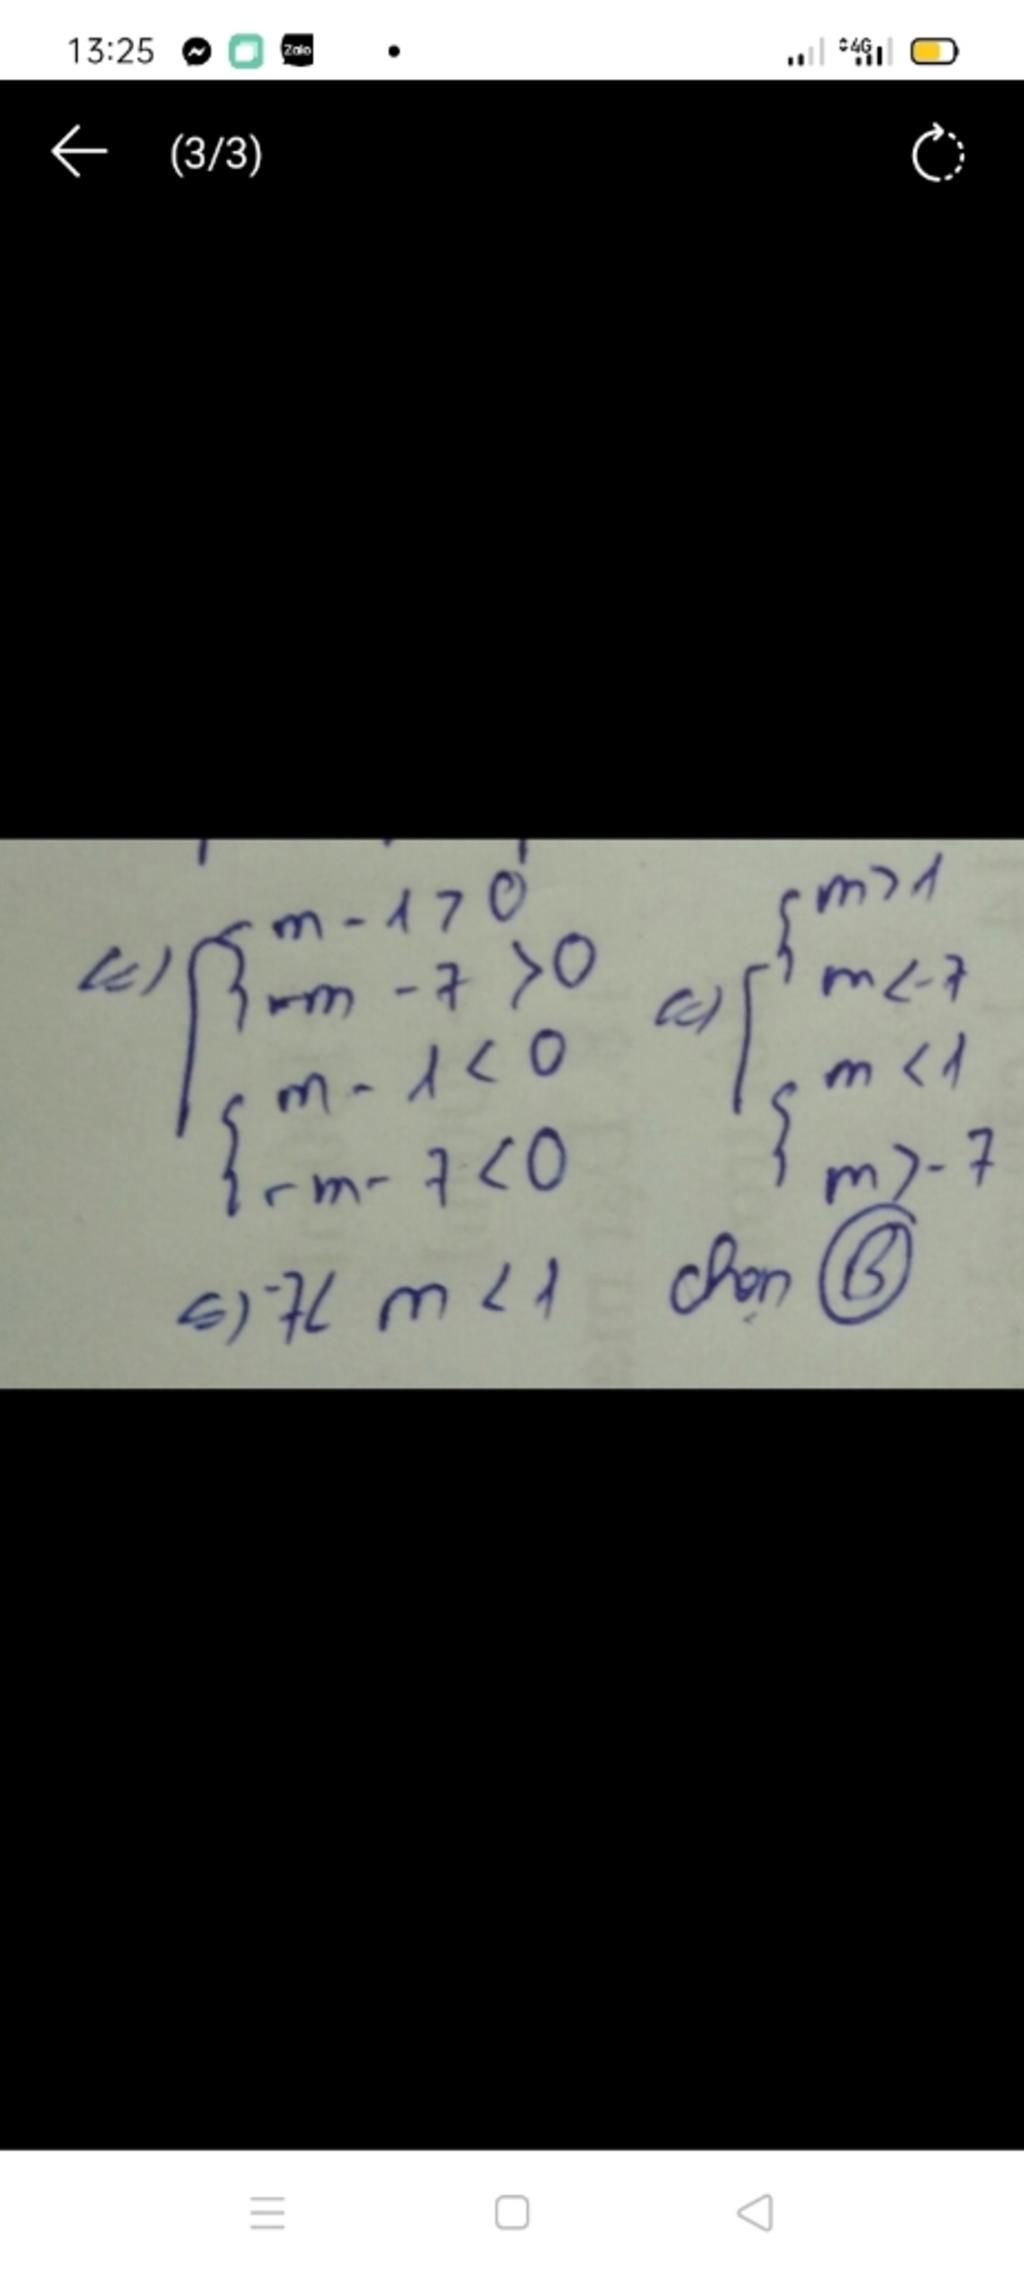 13:25 Zalo 4G
(3/3)
<=> [ { m - 1 > 0
{ -m - 7 > 0
{ m - 1 < 0
{ -m - 7 < 0
<=> [ { m > 1
{ m < -7
{ m < 1
{ m > -7
<=> -7 < m < 1 chọn B